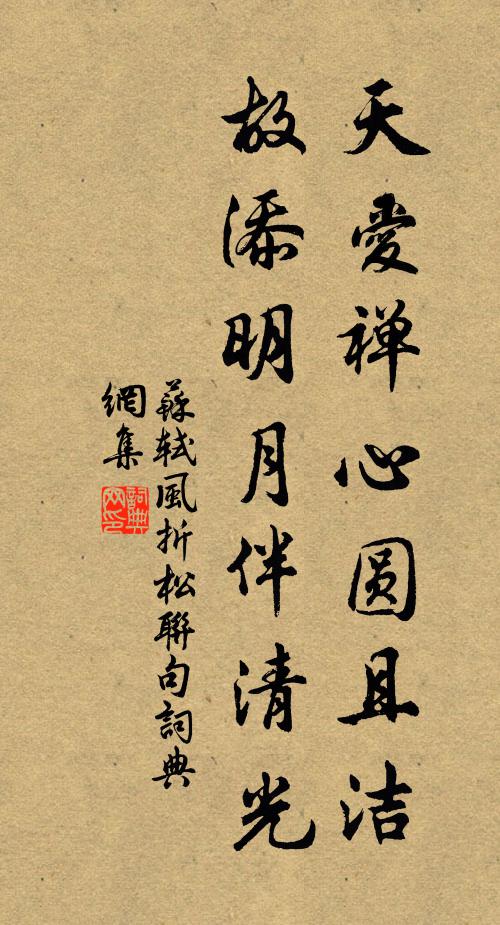 天愛禅心圆且洁
故添明月伴清光
蘇轼風折松聯句詞典
網集
詞典
网印